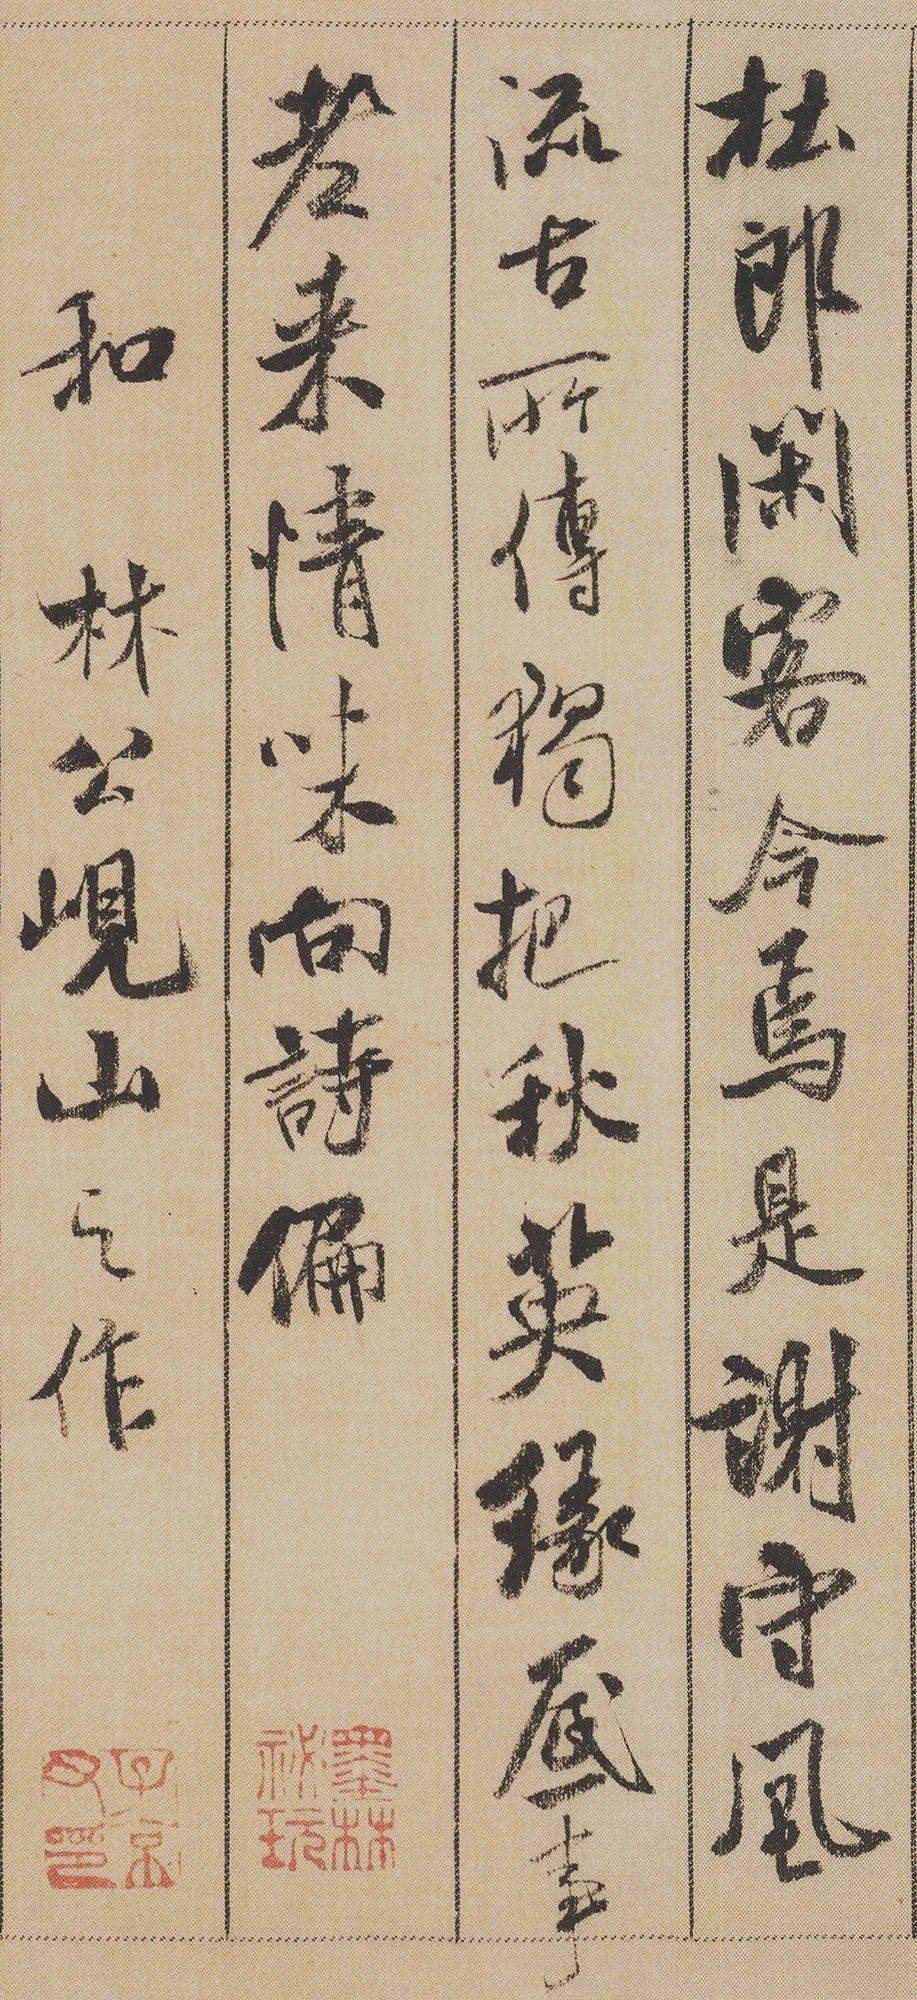 杜郎閑客今焉是謝守風
流古所傳獨把秋英緣底事
老来情味向詩偏
和林公峴山之作
墨林
祕玩
子京
父印